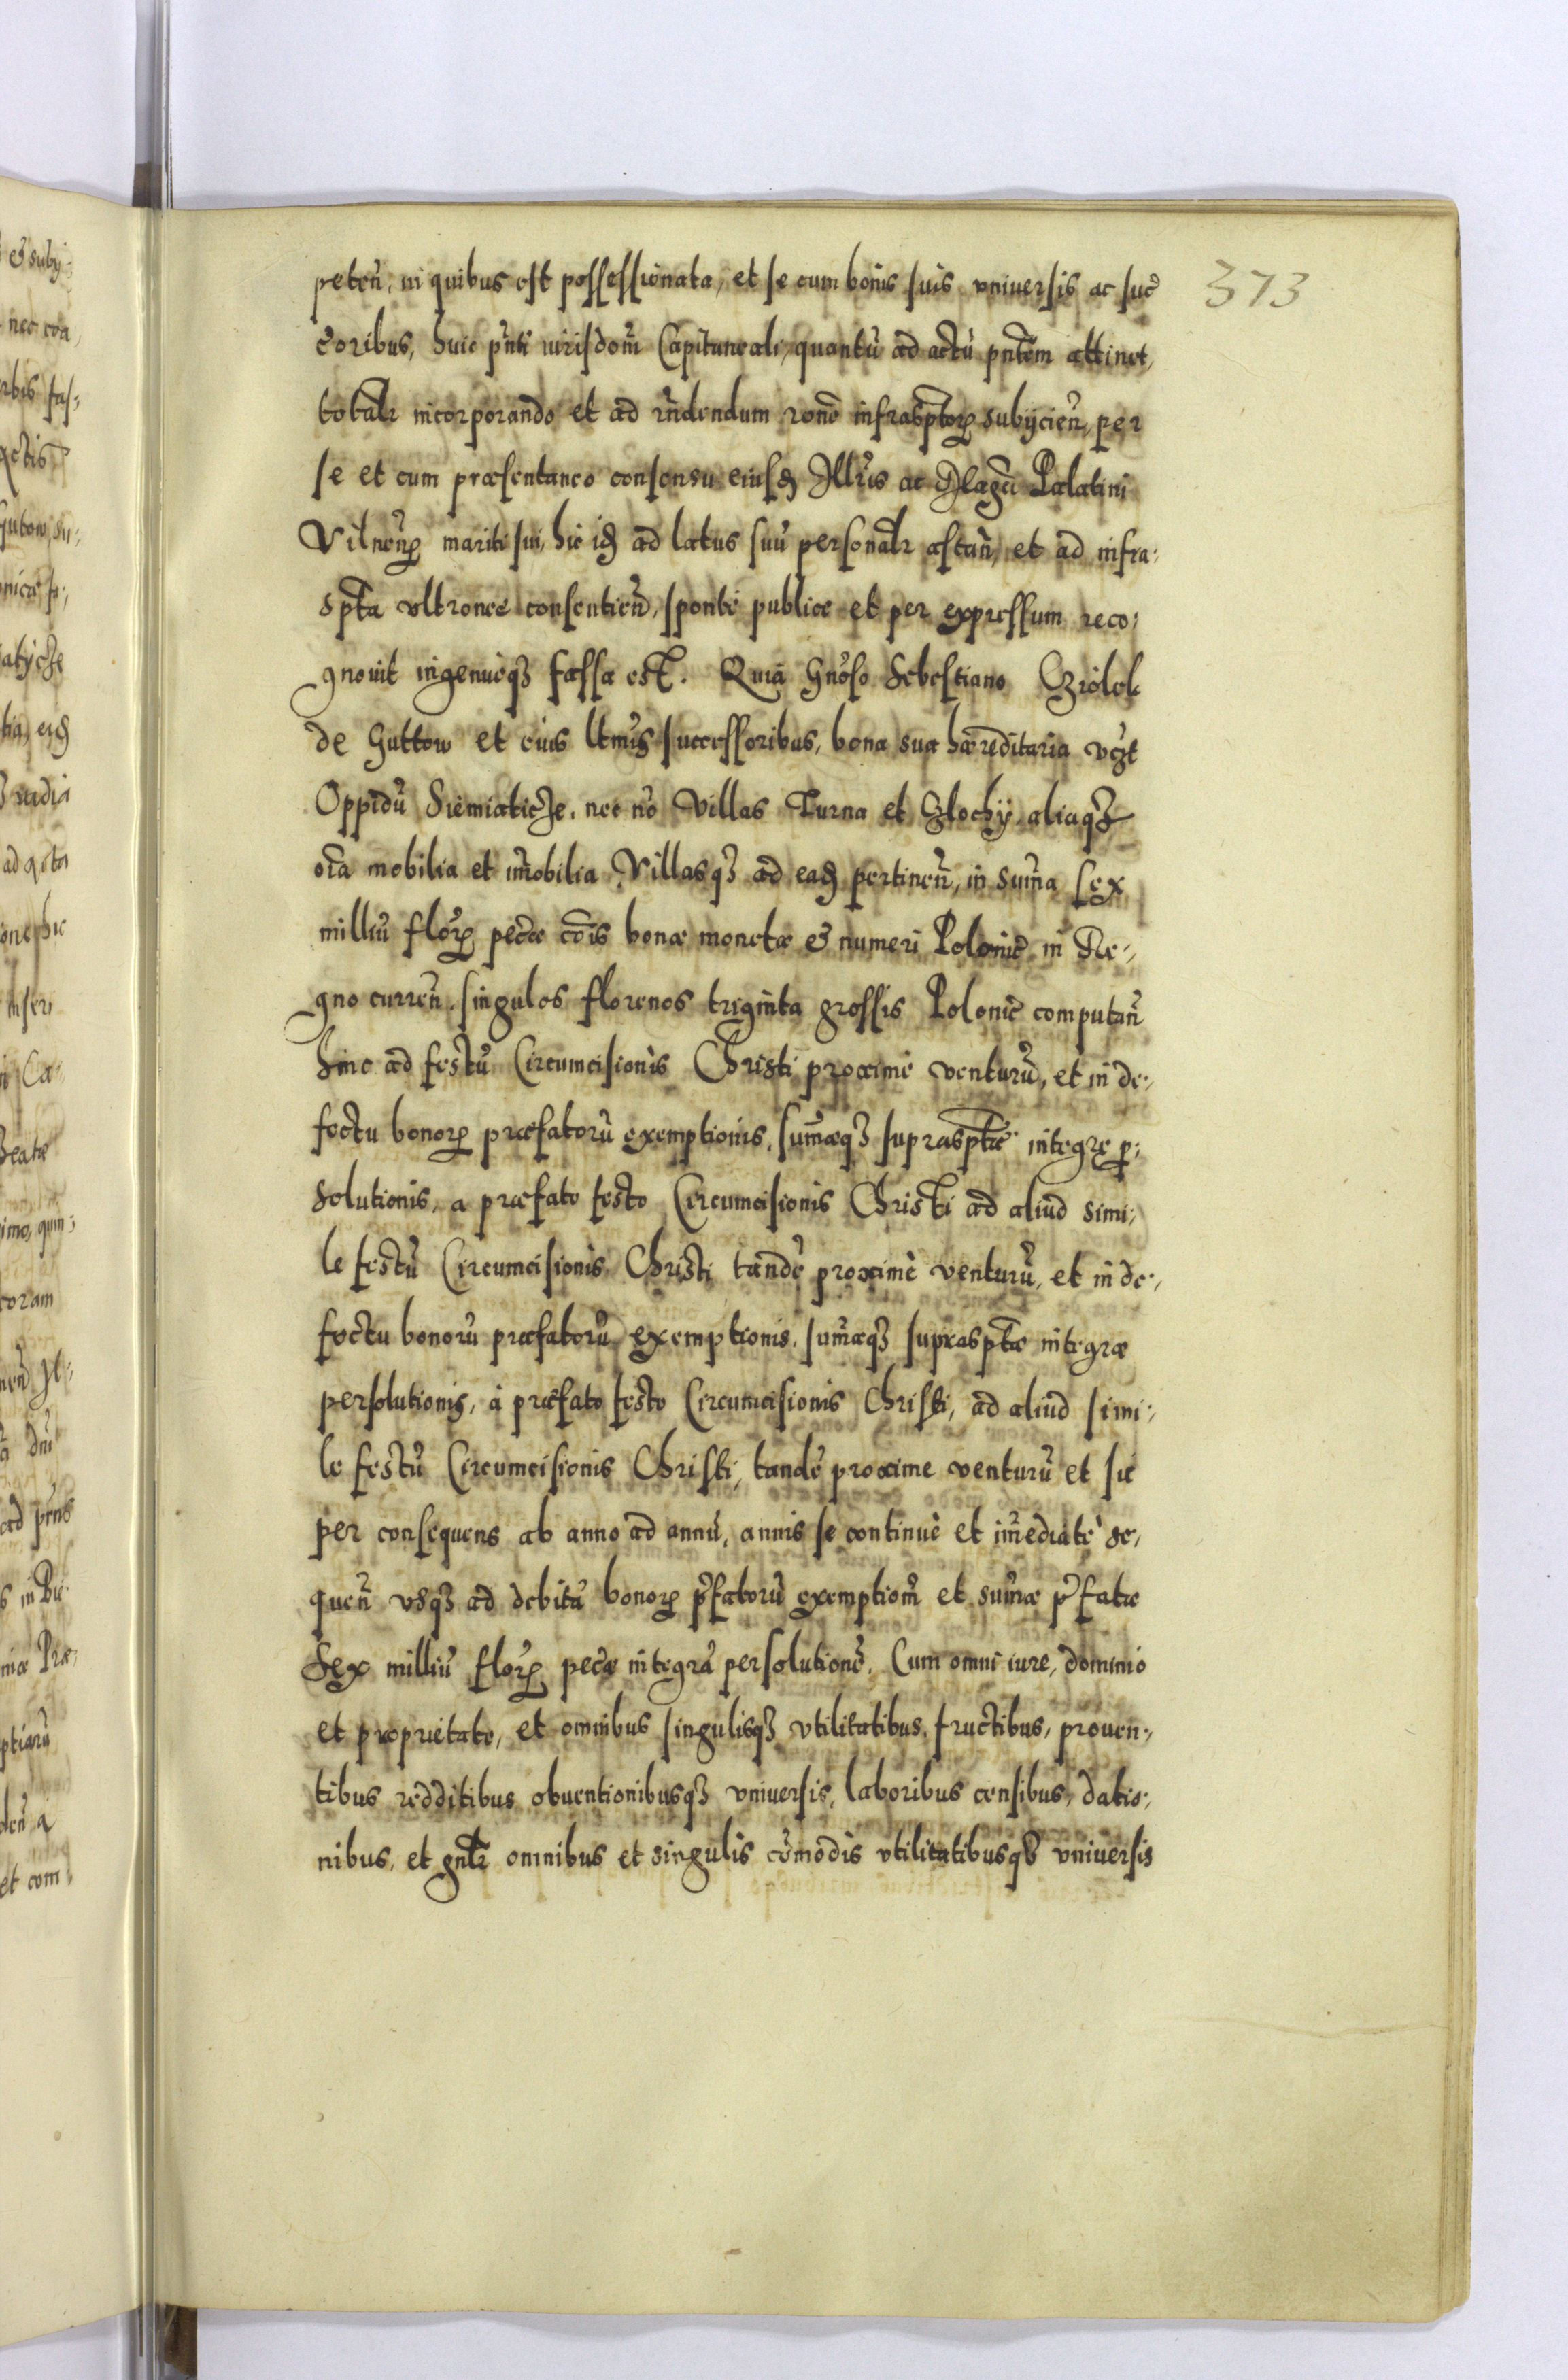 373
peten̄, in quibus est possessionata, et se cum bonis suis vniuersis ac suc̄
c̄oribus, huic pn̄ti iurisdom̄ Capitaneali, quantū ad actū pn̄tem attinet,
totalr̄ incorporando et ad rn̄dendum rone infrasptorꝝ subÿcien̄, per
se et cum præsentaneo consensu eiusd̄ Illris ac Magci Palatini
Vilnen̄ꝝ mariti sui, hic id̄ ad latus suū personalr̄ astan̄, et ad infra:
spta ultronee consentien̄, sponte publice et per expressum reco:
gnouit ingenueqꝫ fassa est. Quia Gnoso Sebestiano Cziolek
de Guttow et eius ltmis successoribus, bona sua hæreditaria vcꝫt
Oppidū Siemiaticze, nec nō Villas Turna et Czlochÿ aliaqꝫ
oīa mobilia et im̄obilia Villasqꝫ ad ead̄ pertinen̄, in sum̄a sex
milliū florꝝ pecce cōis bonæ monetæ & numeri Polonic̄ in Re:
gno curren̄. singulos florenos triginta grossis Polonic̄ computan̄
hinc ad festū Circumcisionis Christi proxime venturū, et in de:
fectu bonorꝝ præfatorū exemptionis, sum̄æqꝫ suprasptæ integre ꝑ:
solutionis, a præfato festo Circumcisionis Christi ad aliud simi:
le festū Circumcisionis Christi tandē proxime venturū, et in de:
fectu bonorū præfatorū exemptionis, sum̄æqꝫ supraspta integræ
persolutionis, à præfato festo Circumcisionis Christi, ad aliud simi:
le festū Circumcisionis Christi, tandē proxime venturū et sic
per consequens ab anno ad annū, annis se continuè et im̄ediatè se:
quen̄ vsqꝫ ad debitā bonorꝝ p̄fatorū exemptiom̄ et sum̄æ p̄fatæ
Sex milliū florꝝ pecæ integrā persolutionē. Cum omni iure, dominio
et proprietate, et omnibus singulisqꝫ vtilitatibus, fructibus, prouen:
tibus redditibus obuentionibusqꝫ vniuersis, laboribus censibus, datio:
nibus, et gnlr̄ omnibus et singulis cōmodis vtilitatibusqꝫ vniuersis